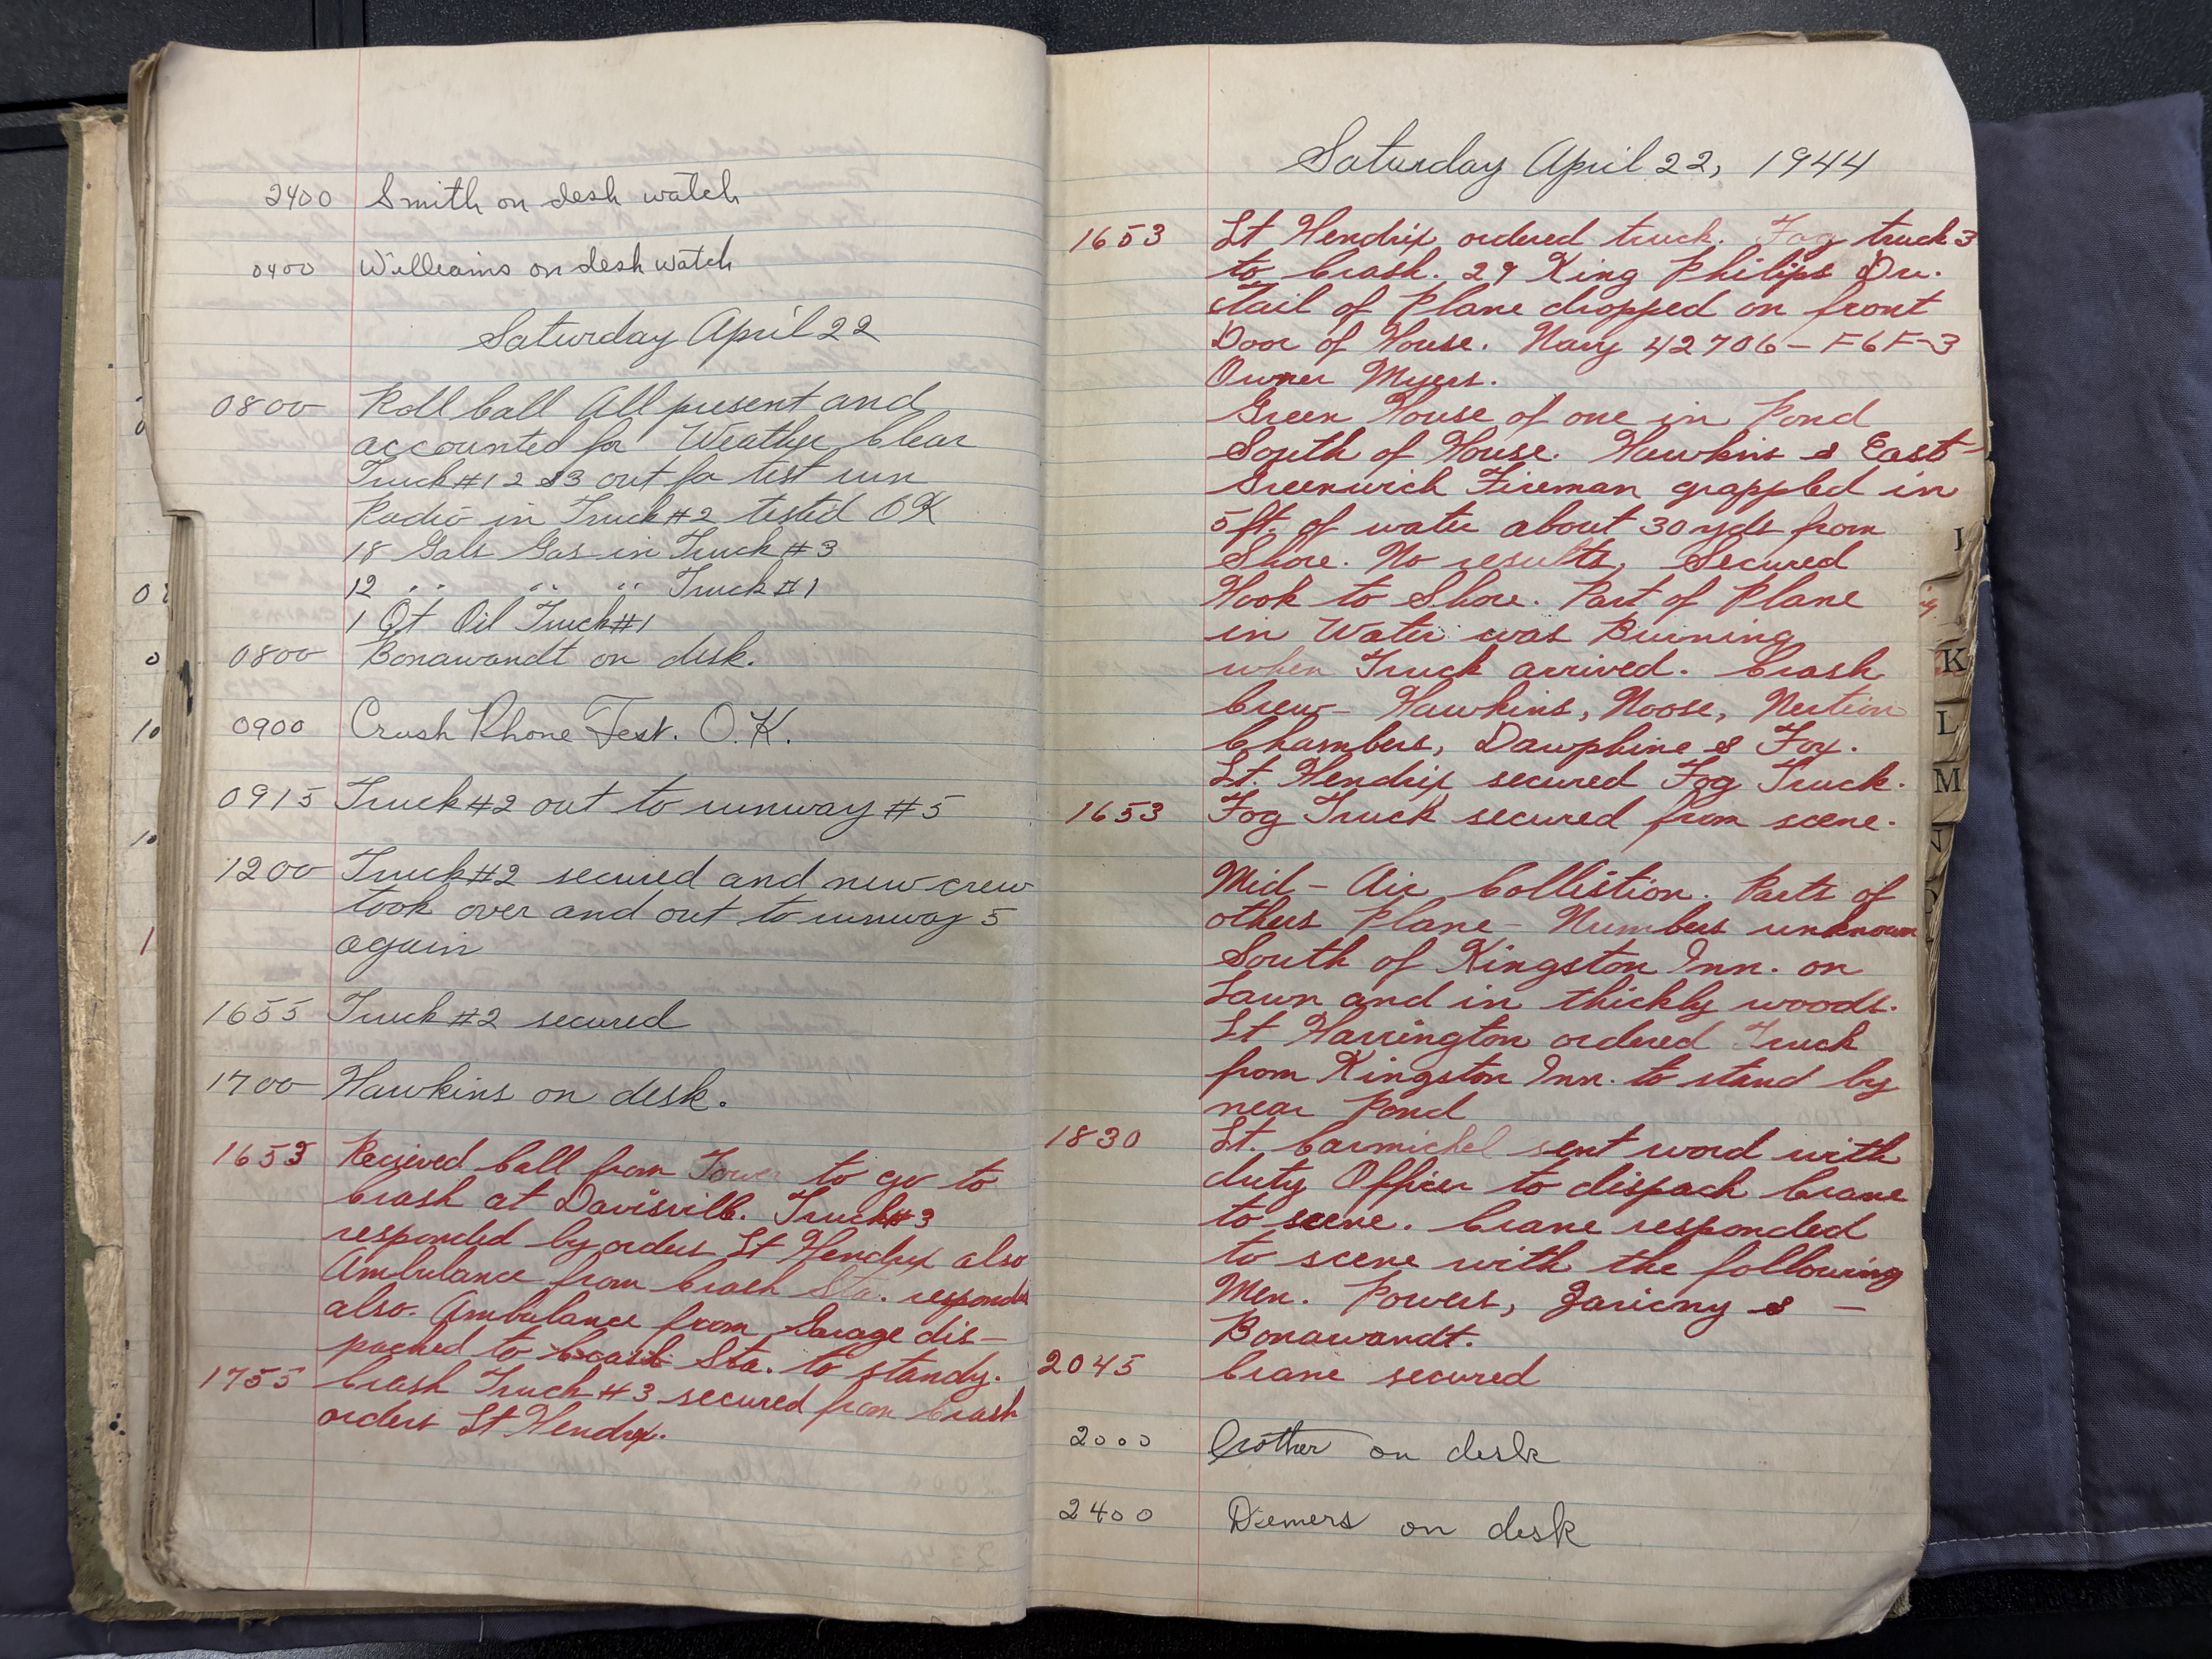 2400 Smith on desk watch
0400 Williams on desk watch
Saturday April 22
0800 Roll Call All present and
accounted for Weather Clear
Truck #1 2 &3 out for test run
Radio in Truck #2 tested OK
18 Gals Gas in Truck #3
12 " " " Truck #1
1 Qt Oil Truck #1
0800 Bonawandt on desk.
0900 Crash Phone Test. O.K.
0915 Truck #2 out to runway #5
1200 Truck #2 secured and new crew
took over and out to runway 5
again
1655 Truck #2 secured
1700 Hawkins on desk.
1653 Recieved Call from Tower to go to
Crash at Davisville. Truck #3
responded by orders Lt Hendrix also
Ambulance from Crash Sta. responds
also. Ambulance from Garage dis-
pached to Crash Sta. to standy.
1755 Crash Truck #3 secured from Crash
orders Lt Hendrix.
Saturday April 22, 1944
1653 Lt Hendrix ordered truck. Fog truck 3
to Crash. 29 King Philips Dr.
Tail of Plane dropped on front
Door of House. Navy 42706 - F6F-3
Owner Myers.
Green House of one in Pond
South of House. Hawkins & East-
Greenwich Fireman grappled in
5ft. of water about 30 yds from
Shore. No results, Secured
Hook to Shore. Part of Plane
in Water was Burning
when Truck arrived. Crash
Crew - Hawkins, Noose,
Chambers, Dawphine & Fox.
Lt. Hendrix secured Fog Truck.
1653 Fog Truck secured from scene.
Mid - Air Collistion. Parts of
others Plane - Numbers unknown
South of Kingston Inn. on
Lawn and in thickly woods.
Lt Harrington ordered Truck
from Kingston Inn. to stand by
near Pond
1830 Lt. Carmichel sent word with
duty Officer to dispach Crane
to scene. Crane responded
to scene with the following
Men. Powers, Zaricny & -
Bonawandt.
2045 Crane secured
2000 Crother on desk
2400 Diemers on desk
I
K
L
M